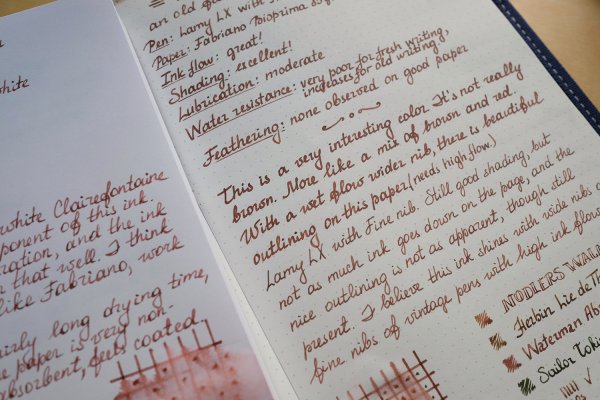 white
white Clairefontaine
ponent of this ink.
ration, and the ink
n that well. I think
like Fabriano, work
airly long drying time,
paper is very non-
absorbent, feels coated
an old
Pen: Lamy LX with
Paper: Fabriano Bioprima
Ink flow: great!
Shading: excellent!
Lubrication: moderate
Water resistance: very poor for fresh writing,
increases for old writing.
Feathering: none observed on good paper
This is a very interesting color. It's not really
brown. More like a mix of brown and red.
With a wet flow wider nib, there is beautiful
outlining on this paper (needs high flow)
Lamy LX with Fine nib. Still good shading, but
not as much ink goes down on the page, and the
nice outlining is not as apparent, though still
present. I believe this ink shines with wide nibs o
fine nibs of vintage pens with high ink flow
NOODLERS
Herbin Lie de T
Waterman Abs
Sailor Toki